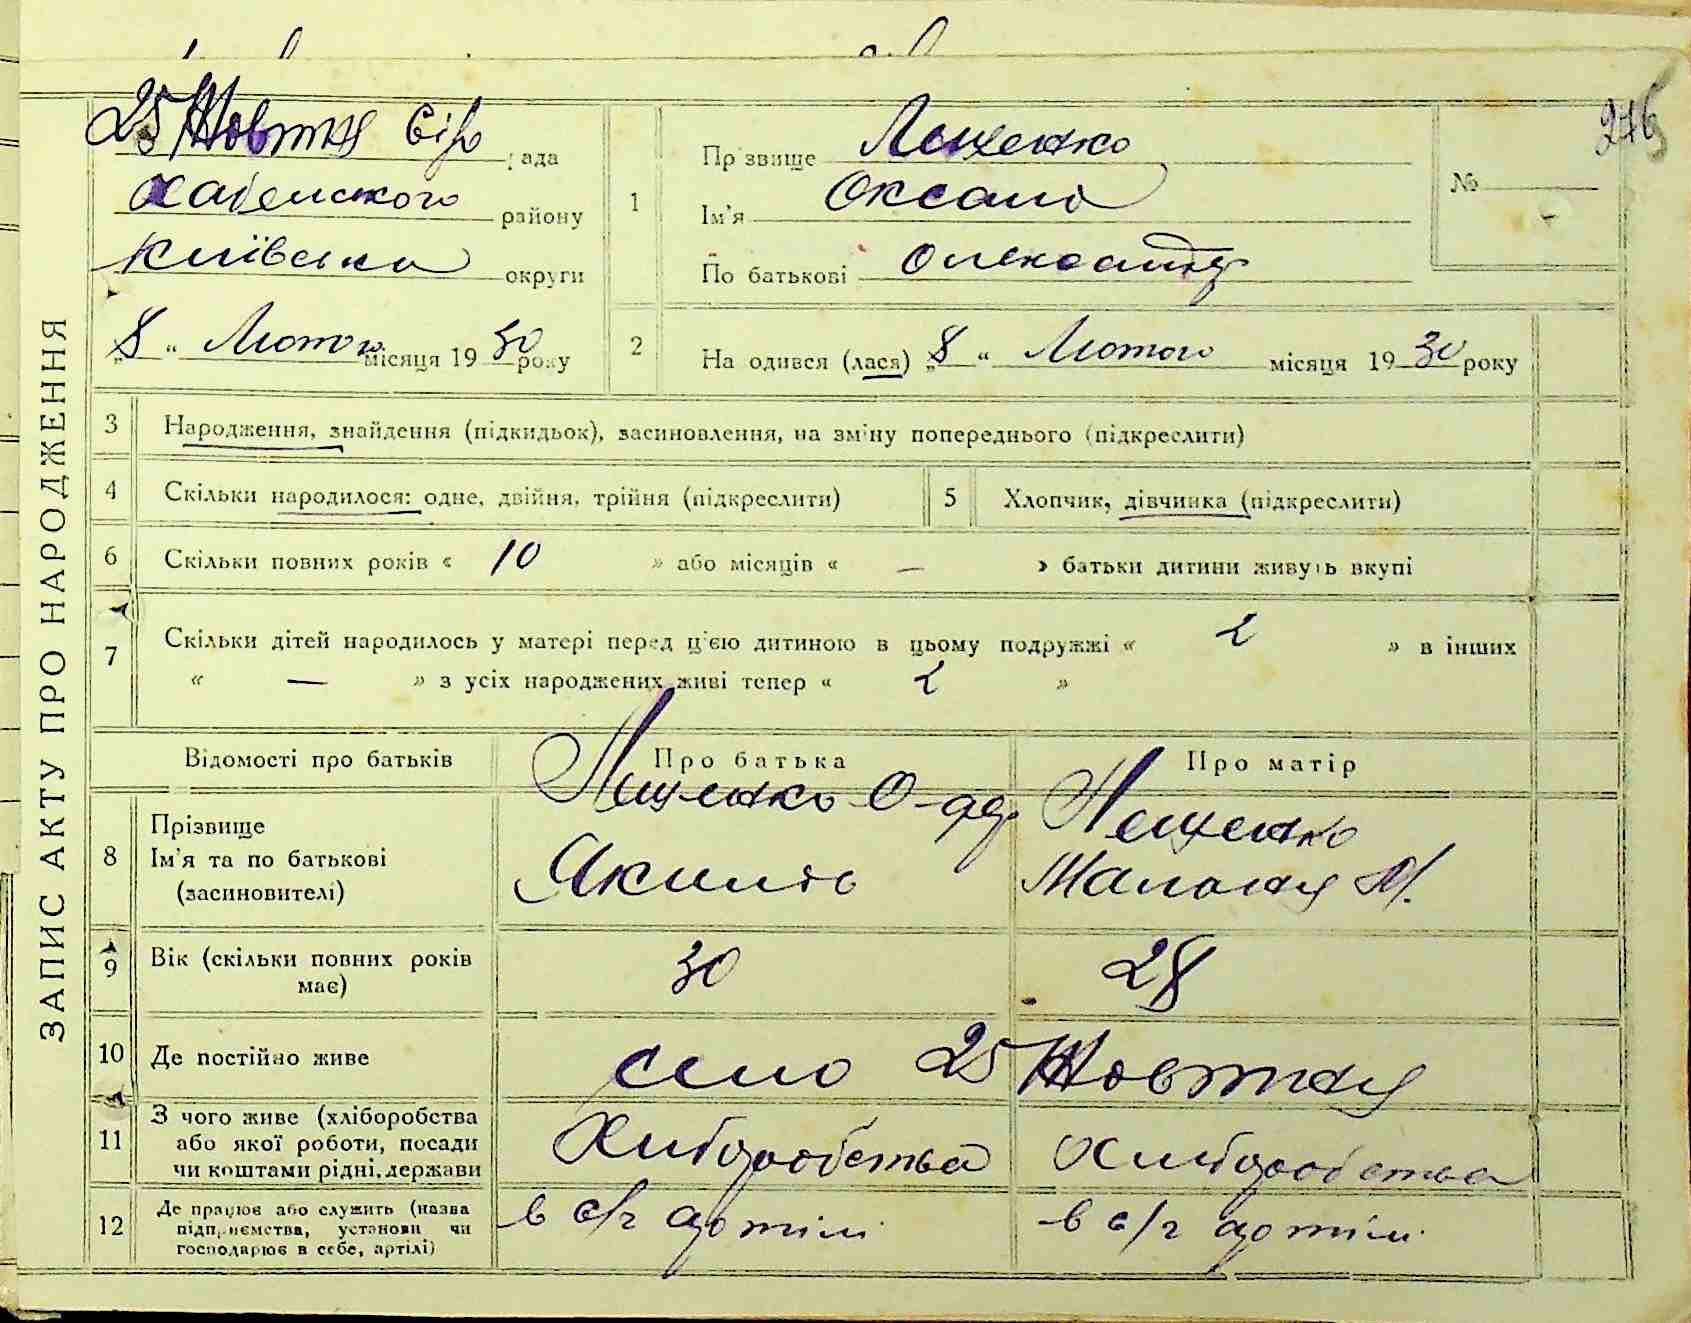 276
ЗАПИС АКТУ ПРО НАРОДЖЕННЯ
25 Жовтня Сір рада
Хабенського району
Київська округи
„8“ Лютого місяця 1930 року
1
Прізвище Лещенко
Ім'я Оксана
По батькові Олександр
№
2 На одився (лася) „8“ Лютого місяця 1930 року
3 Народження, знайдення (підкидьок), засиновлення, на зміну попереднього (підкреслити)
4 Скільки народилося: одне, двійня, трійня (підкреслити) 5 Хлопчик, дівчинка (підкреслити)
6 Скільки повних років « 10 » або місяців « — » батьки дитини живуть вкупі
7 Скільки дітей народилось у матері перед ц'єю дитиною в цьому подружжі « 2 » в інших
« — » з усіх народжених живі тепер « 2 »
Відомості про батьків Про батька Про матір
8 Прізвище
Ім'я та по батькові
(засиновителі)
Лещенко О-др
Лещенко
Маланя М.
9 Вік (скільки повних років має) 30 28
10 Де постійно живе село 25 Жовтня
11 З чого живе (хліборобства
або якої роботи, посади
чи коштами рідні, держави
Хліборобства Хліборобства
12 Де працює або служить (назва
підприємства, установи чи
господарює в себе, артілі)
в с/г артілі в с/г артілі